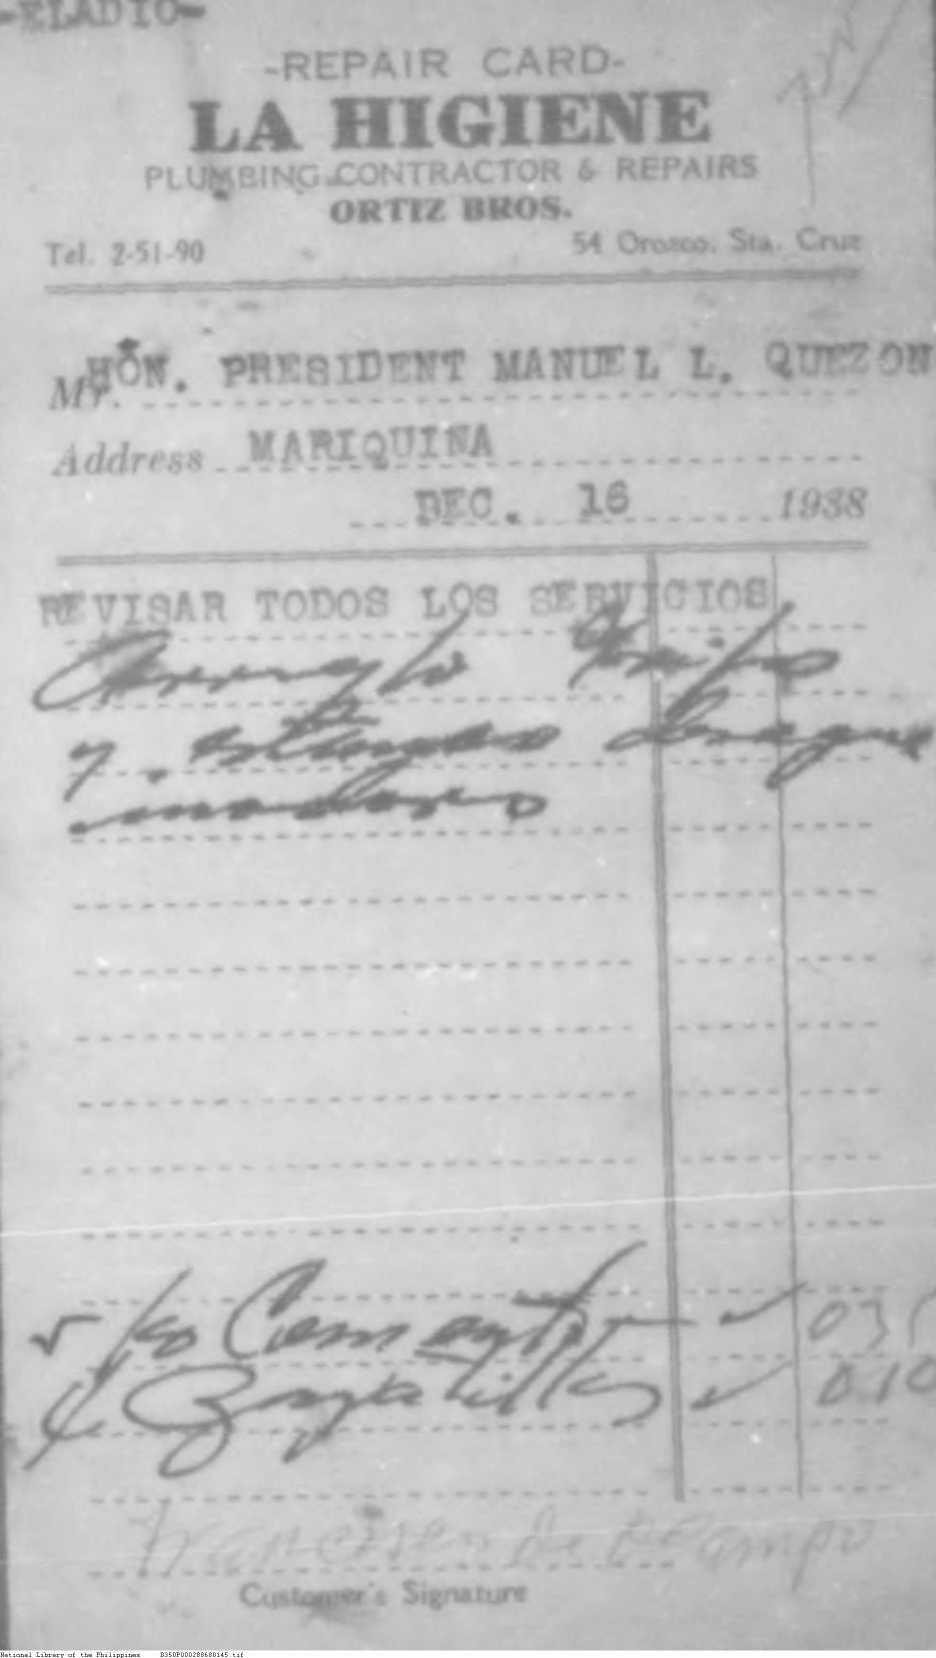 -ELADIO-
-REPAIR CARD-
LA HIGIENE
PLUMBING CONTRACTOR & REPAIRS
ORTIZ BROS.
Tel. 2-51-90 54 Orozco, Sta. Cruz
Mr. HON. PRESIDENT MANUEL L. QUEZON
Address MARIQUINA
DEC. 16 1938
REVISAR TODOS LOS SERVICIOS
Arreglo Gripo
y
inodoro
Cemento 03
Zapatillas 0.10
de Ocampo
Customer's Signature
National Library of the Philippines D350P000288680145.tif